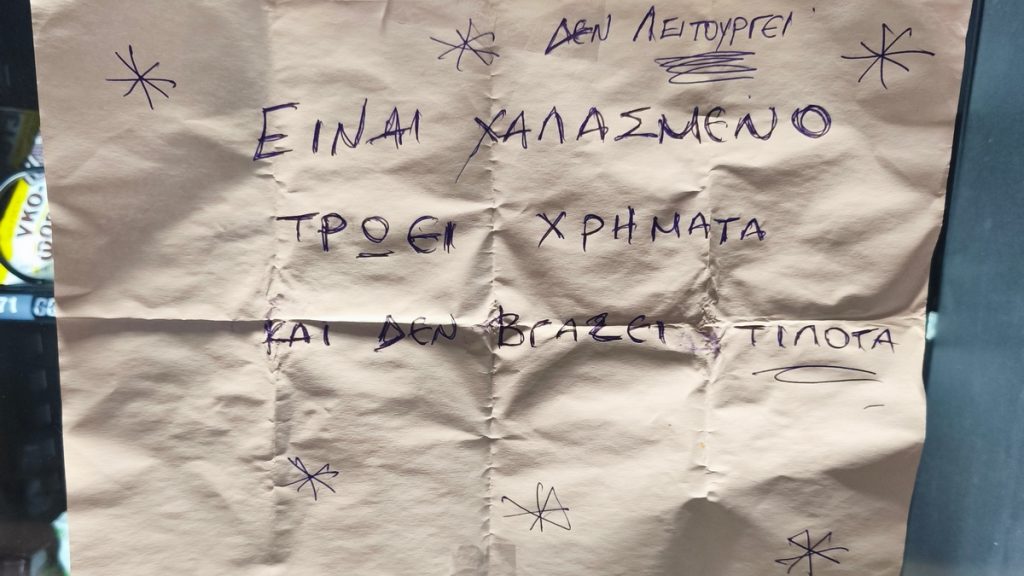 ΔΕΝ ΛΕΙΤΟΥΡΓΕΙ
ΕΙΝΑΙ ΧΑΛΑΣΜΕΝΟ
ΤΡΩΕΙ ΧΡΗΜΑΤΑ
ΚΑΙ ΔΕΝ ΒΓΑΖΕΙ ΤΙΠΟΤΑ
71